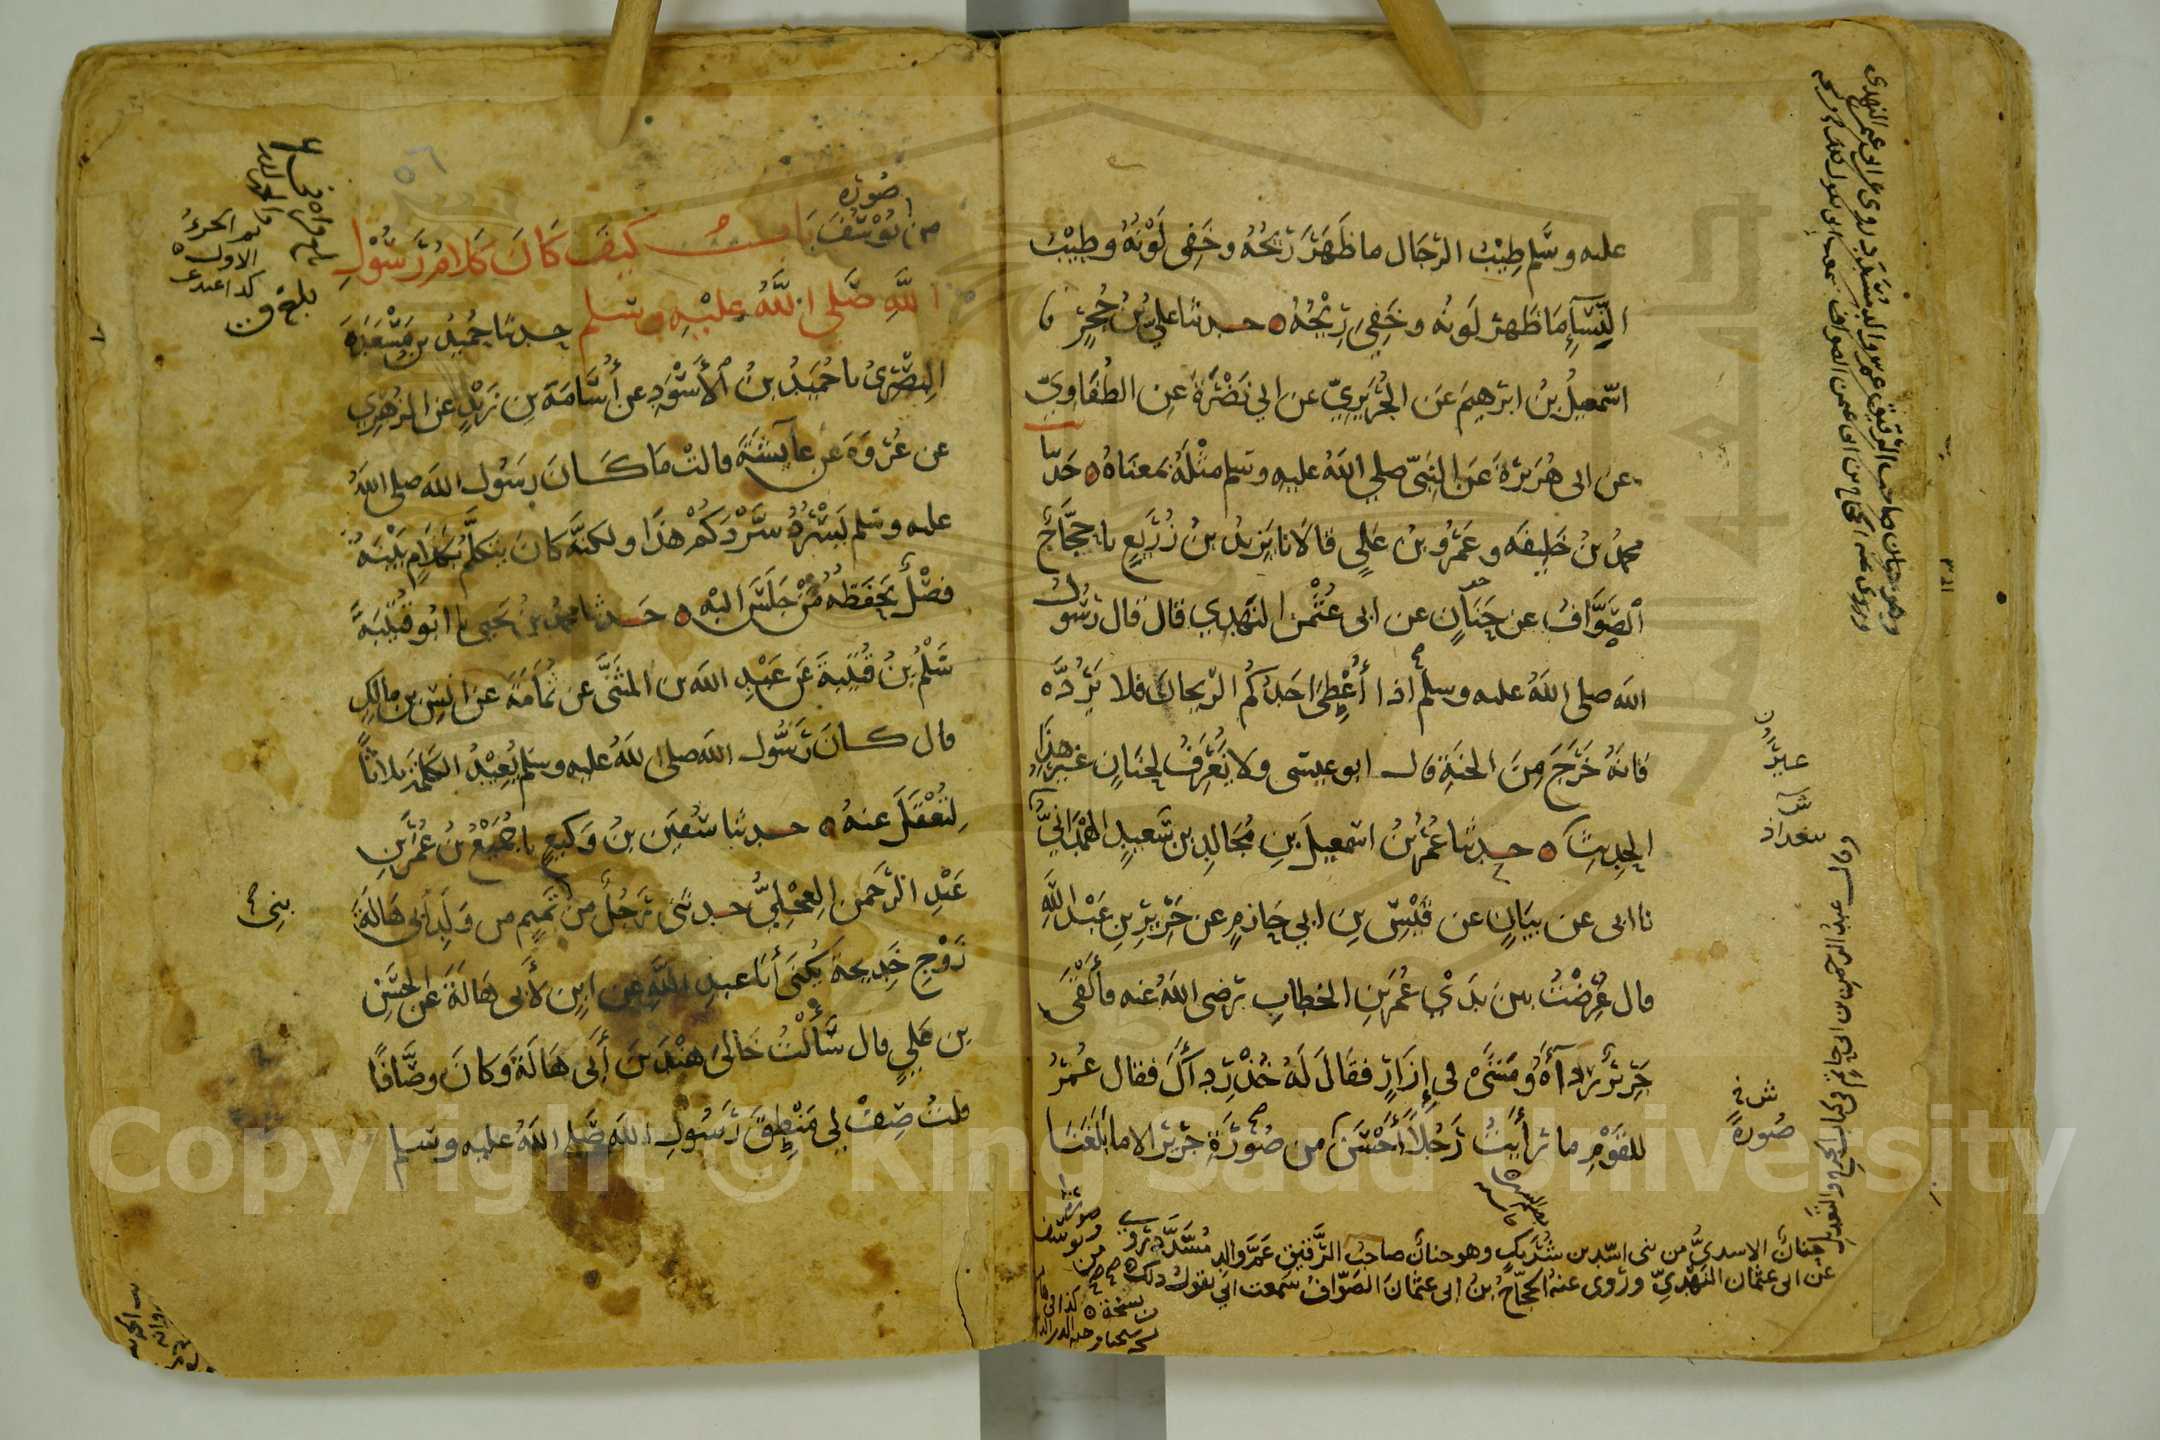 عليه وسلم طِيْبُ الرِّجَال ما ظَهَرَ رِيْحُهُ وخَفِى لَوْنُهُ وطِيْبُ
النِّسَآءِ مَا ظَهَرَ لَونُه وخَفِيَ رِيْحُهُ ه حدثنا عليُّ بنُ حُجرٍ نا
اسْمعيلُ بنُ ابرَهيمَ عَن الجُرَيرِيِّ عن ابي نَضْرَةَ عن الطُفَاوِيِّ
عن ابى هُرَيْرَةَ عَن النَبيّ صلي اللهُ عليهِ وسلم مثْلَهُ بمعنَاهُ ه حَدّثنا
محمدُ بنُ خَليفَه وعَمْرُو بنُ عَلِي قالا نا يَزيدُ بنُ زُرَيعٍ نا حجَّاجٌ
الصَّوَّافُ عن حَنَانٍ عن ابى عُثْمٰن النَهْدِي قالَ قال رَسُوْلُ
الله صلى اللهُ عليه وسلم اذا أُعْطِىَ احَدُكُم الرَّيحانَ فلا يَرُدَّه
فَانهُ خَرَجَ مِنَ الجنةِ قال ابو عيسَى ولا يُعْرَفُ لحنَانٍ غيرُ هذَا
الحديثِ ه حدثنا عُمَرُ بنُ اسْمعِيلَ بنِ مُجَالدِ بن سَعيدٍ الهَمْدَانيُّ
نا ابى عن بيَانٍ عن قَيْسِ بنِ ابي حَازمٍ عن جَرِيْرِ بنِ عَبْدِ اللهِ
قال عُرِضْتُ بينَ يَدَيْ عُمَرَ بنِ الخطابِ رَضى اللهُ عنه فأَلْقَى
جَرِيْرٌ رِدَآءَهُ ومَشَى في إزارٍ فقَالَ لَهُ خُذْ رِدَاءَكَ فقال عُمَرُ
للقَوْمِ ما رأَيتُ رَجُلاً أحْسَنَ من صُوْرَةِ جَرير الا ما بلَغَنَا
عبد الرحمن بن ابي حاتم في كتاب الجرح والتعديل
صُورةً
حنانٌ الاسديُّ من بنى اسَد بن شُرَيكٍ وهو حنان صاحبُ الرَّقيقِ عَمُّ والدِ مُسَدَّد روى
عن ابى عثمان النَهْديِّ وروى عنهُ الحجّاجُ بنُ ابى عثمانَ الصَوّافُ سَمعت ابي يقول ذلك
صُوْرَه
من يُوْسُفَ بَابُ كيفَ كانَ كَلامُ رَسُوْلِ
اللهِ صَلي اللهُ عليْهِ وسَلم حدثنا حُمَيْدُ بن مَسْعَدَةَ
البِصْرىُ نا حُمَيدُ بنُ الأَسْوَدِ عن أُسَامَةَ بنِ زَيْدٍ عن الزهْرِي
عن عُرْوَةَ عَن عَآيشَةَ قالتْ مَا كَانَ رسُول الله صلى اللهُ
عليه وسَلم يَسْرُدُ سَرْدَكُمْ هٰذَا ولكنَّهُ كان يَتكلَّمُ بكَلَامٍ بَيْنَهُ
فَصْلٌ يَحفَظُه مَنْ جَلَسَ اليْه ه حَدثنا محمدُ بنُ يحيى نا ابُو قُتَيْبَةَ
سَلْمُ بنُ قُتَيْبةَ عَن عَبْدِ اللهِ بن المثَنَّى عن ثُمَامَةَ عن انَس بن مالكٍ
قال كانَ رَسُول الله صلى اللهُ عليه وسَلم يُعِيْدُ الكلمةَ ثلاثاً
لِتُعْقَلَ عنهُ ه حدثنا سُفيَن بنُ وَكيعٍ نا جُمَيْعُ بنُ عُمَرَ بنِ
عَبْدِ الرَّحمن العِجْليُّ حدثنى رَجُلٌ مِن تميمٍ من وَلَدِ أبى هَالَةَ
زَوْجِ خَدِيجَةَ يُكنى أبَا عبدِ اللهِ عن ابنٍ لأَبى هَالَةَ عن الحسَنِ
بن عَليٍ قال سَأَلْتُ خَالىَ هنْدَ بنَ أبى هَالَةَ وكَانَ وصَّافًا
قلتُ صِفْ لي مَنْطِقَ رَسُولِ الله صَلى اللهُ عليه وسلم
الجزءُ
الاول
بلغ
Copyright © King Saud University